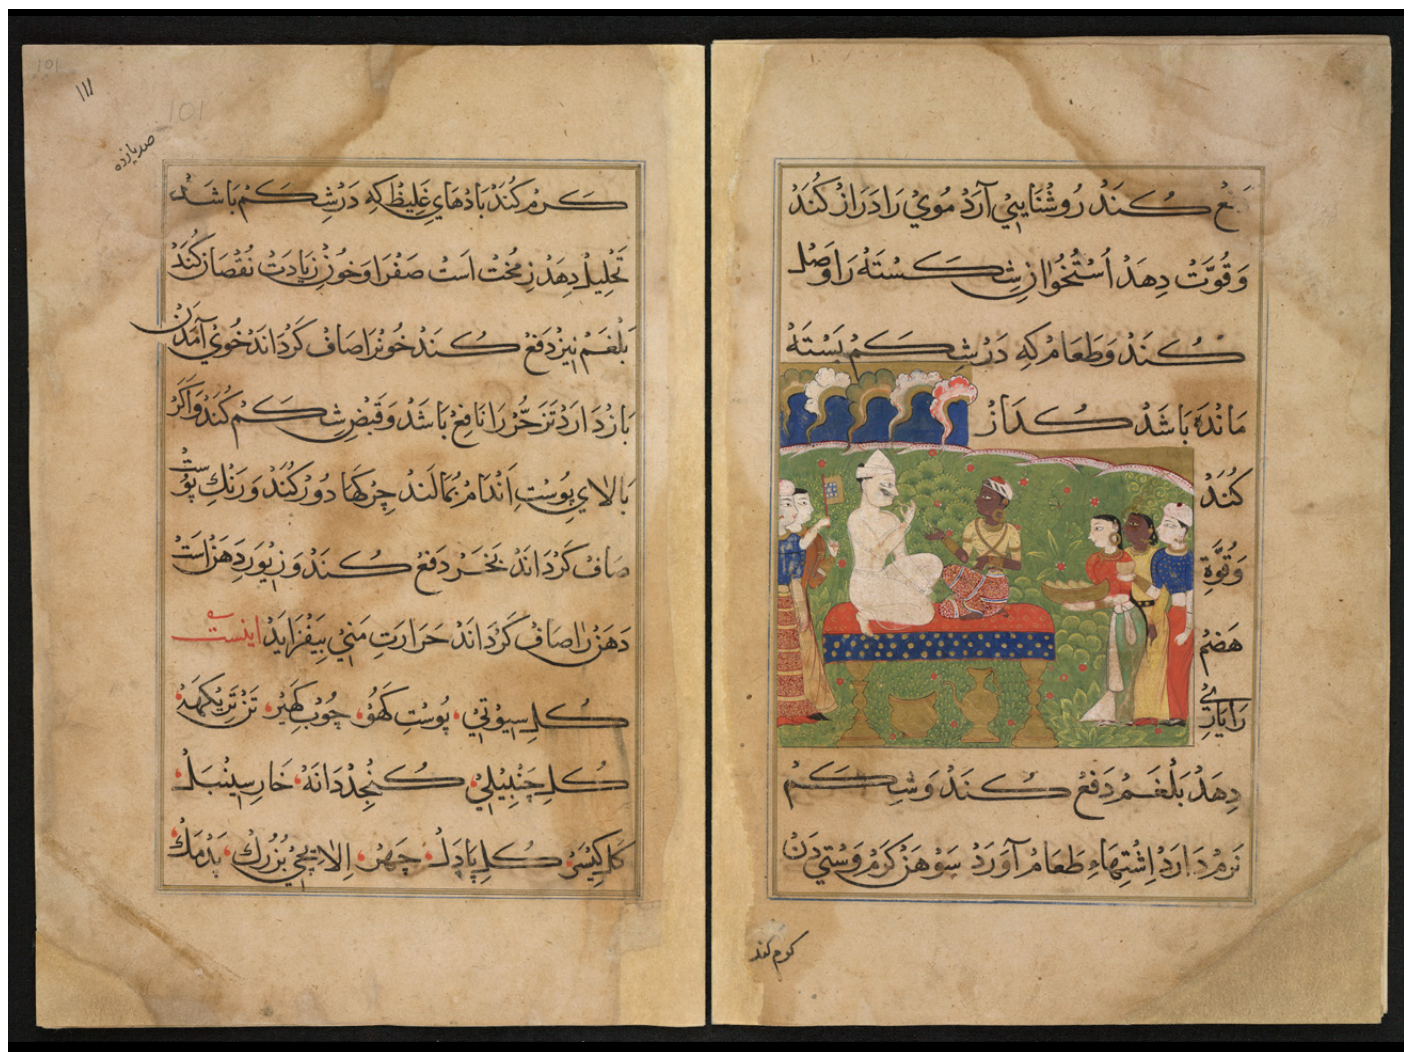 کند روشنایی آرد موی را دراز کند
و قوت دهد استخوان شکسته را وصل
کند و طعام که در شکم بسته
مانده باشد کداز
کند
و قوة
هضم
را یاری
دهد بلغم دفع کند و شکم
نرم دارد اشتهاء طعام آورد سوهن کرم و سستی دن
کرم کند
101
۱۱۱
101
صد یازده
کرم کند بادهای غلیظ که در شکم باشد
تحلیل دهد زمخت است صفرا و خون زیادت نقصان کند
بلغم نیز دفع کند خون را صاف کرداند خوی آمدن
باز دارد تزحر را نافع باشد و قبض شکم کند و اکر
بالای پوست اندام بمالند چرکها دور کند و رنک پوست
صاف کرداند بخر دفع کند و زیور دهن است
دهن را صاف کرداند حرارت منی بیفزاید اینست
کل سیوتی پوست کهو چوب کهیر
کل چنبیلی کنجد دانه خار سینبل
ناکیسر کل پادل چهر الاتچی بزرک پدمک